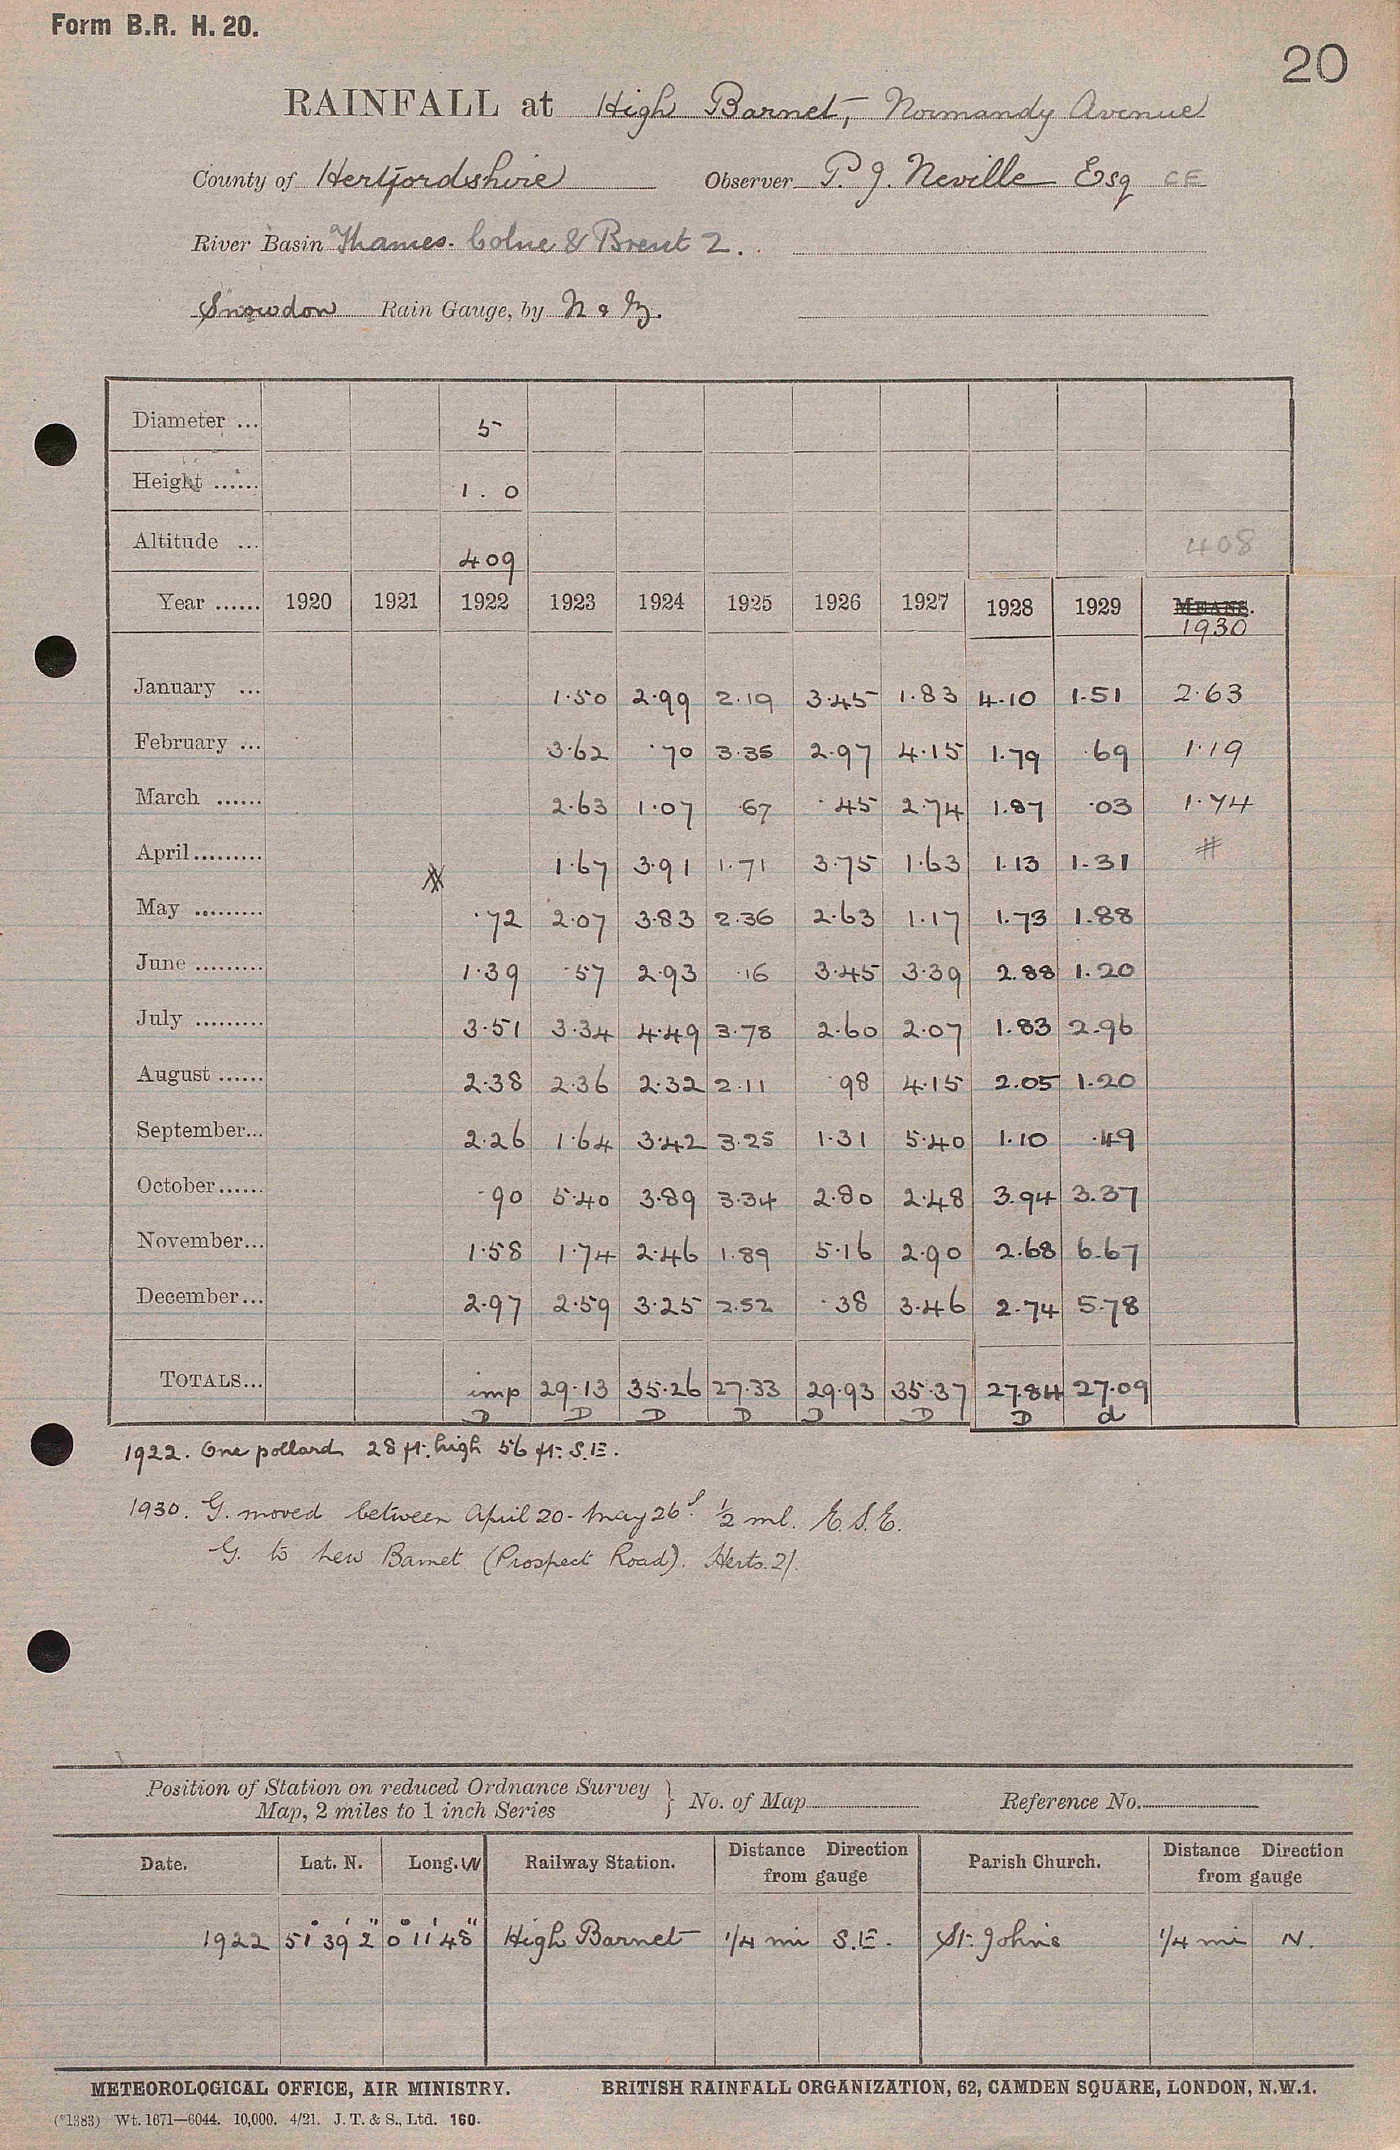 Form B.R. H. 20.
20
RAINFALL at High Barnet, Normandy Avenue
County of Hertfordshire Observer P. J. Neville Esq CE
River Basin Thames. Colne & Brent 2.
Snowdon Rain Gauge, by N & Z.
Diameter ... 5
Height ...... 1.0
Altitude ... 409 408
Year ...... 1920 1921 1922 1923 1924 1925 1926 1927 1928 1929 MEANS.
1930
January ... 1.50 2.99 2.19 3.45 1.83 4.10 1.51 2.63
February ... 3.62 .70 3.35 2.97 4.15 1.79 .69 1.19
March ...... 2.63 1.07 .67 .45 2.74 1.87 .03 1.74
April......... 1.67 3.91 1.71 3.75 1.63 1.13 1.31 #
May ......... .72 2.07 3.83 2.36 2.63 1.17 1.73 1.88
June ......... 1.39 .57 2.93 .16 3.45 3.39 2.88 1.20
July ......... 3.51 3.34 4.49 3.78 2.60 2.07 1.83 2.96
August ...... 2.38 2.36 2.32 2.11 .98 4.15 2.05 1.20
September... 2.26 1.64 3.42 3.25 1.31 5.40 1.10 .49
October...... .90 5.40 3.89 3.34 2.80 2.48 3.94 3.37
November... 1.58 1.74 2.46 1.89 5.16 2.90 2.68 6.67
December... 2.97 2.59 3.25 2.52 .38 3.46 2.74 5.78
TOTALS... imp 29.13 35.26 27.33 29.93 35.37 27.84 27.09
D D D D D D D d
1922. One pollard 28 ft. high 56 ft. S.E.
1930. G. moved between April 20 - May 26 ½ ml. E.S.E.
G. to New Barnet (Prospect Road). Herts. 21.
Position of Station on reduced Ordnance Survey
Map, 2 miles to 1 inch Series } No. of Map Reference No.
Date. Lat. N. Long. W Railway Station. Distance Direction from gauge Parish Church. Distance Direction from gauge
1922 51° 39' 2" 0° 11' 48" High Barnet 1/4 mi S.E. St. John's 1/4 mi N.
METEOROLOGICAL OFFICE, AIR MINISTRY. BRITISH RAINFALL ORGANIZATION, 62, CAMDEN SQUARE, LONDON, N.W.1.
(*1383) Wt. 1671—6044. 10,000. 4/21. J. T. & S., Ltd. 160.